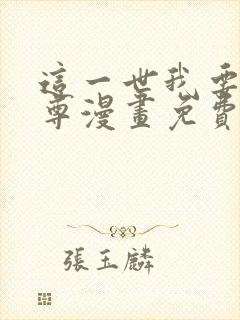 這一世我要
尊漫畫免費
張玉麟